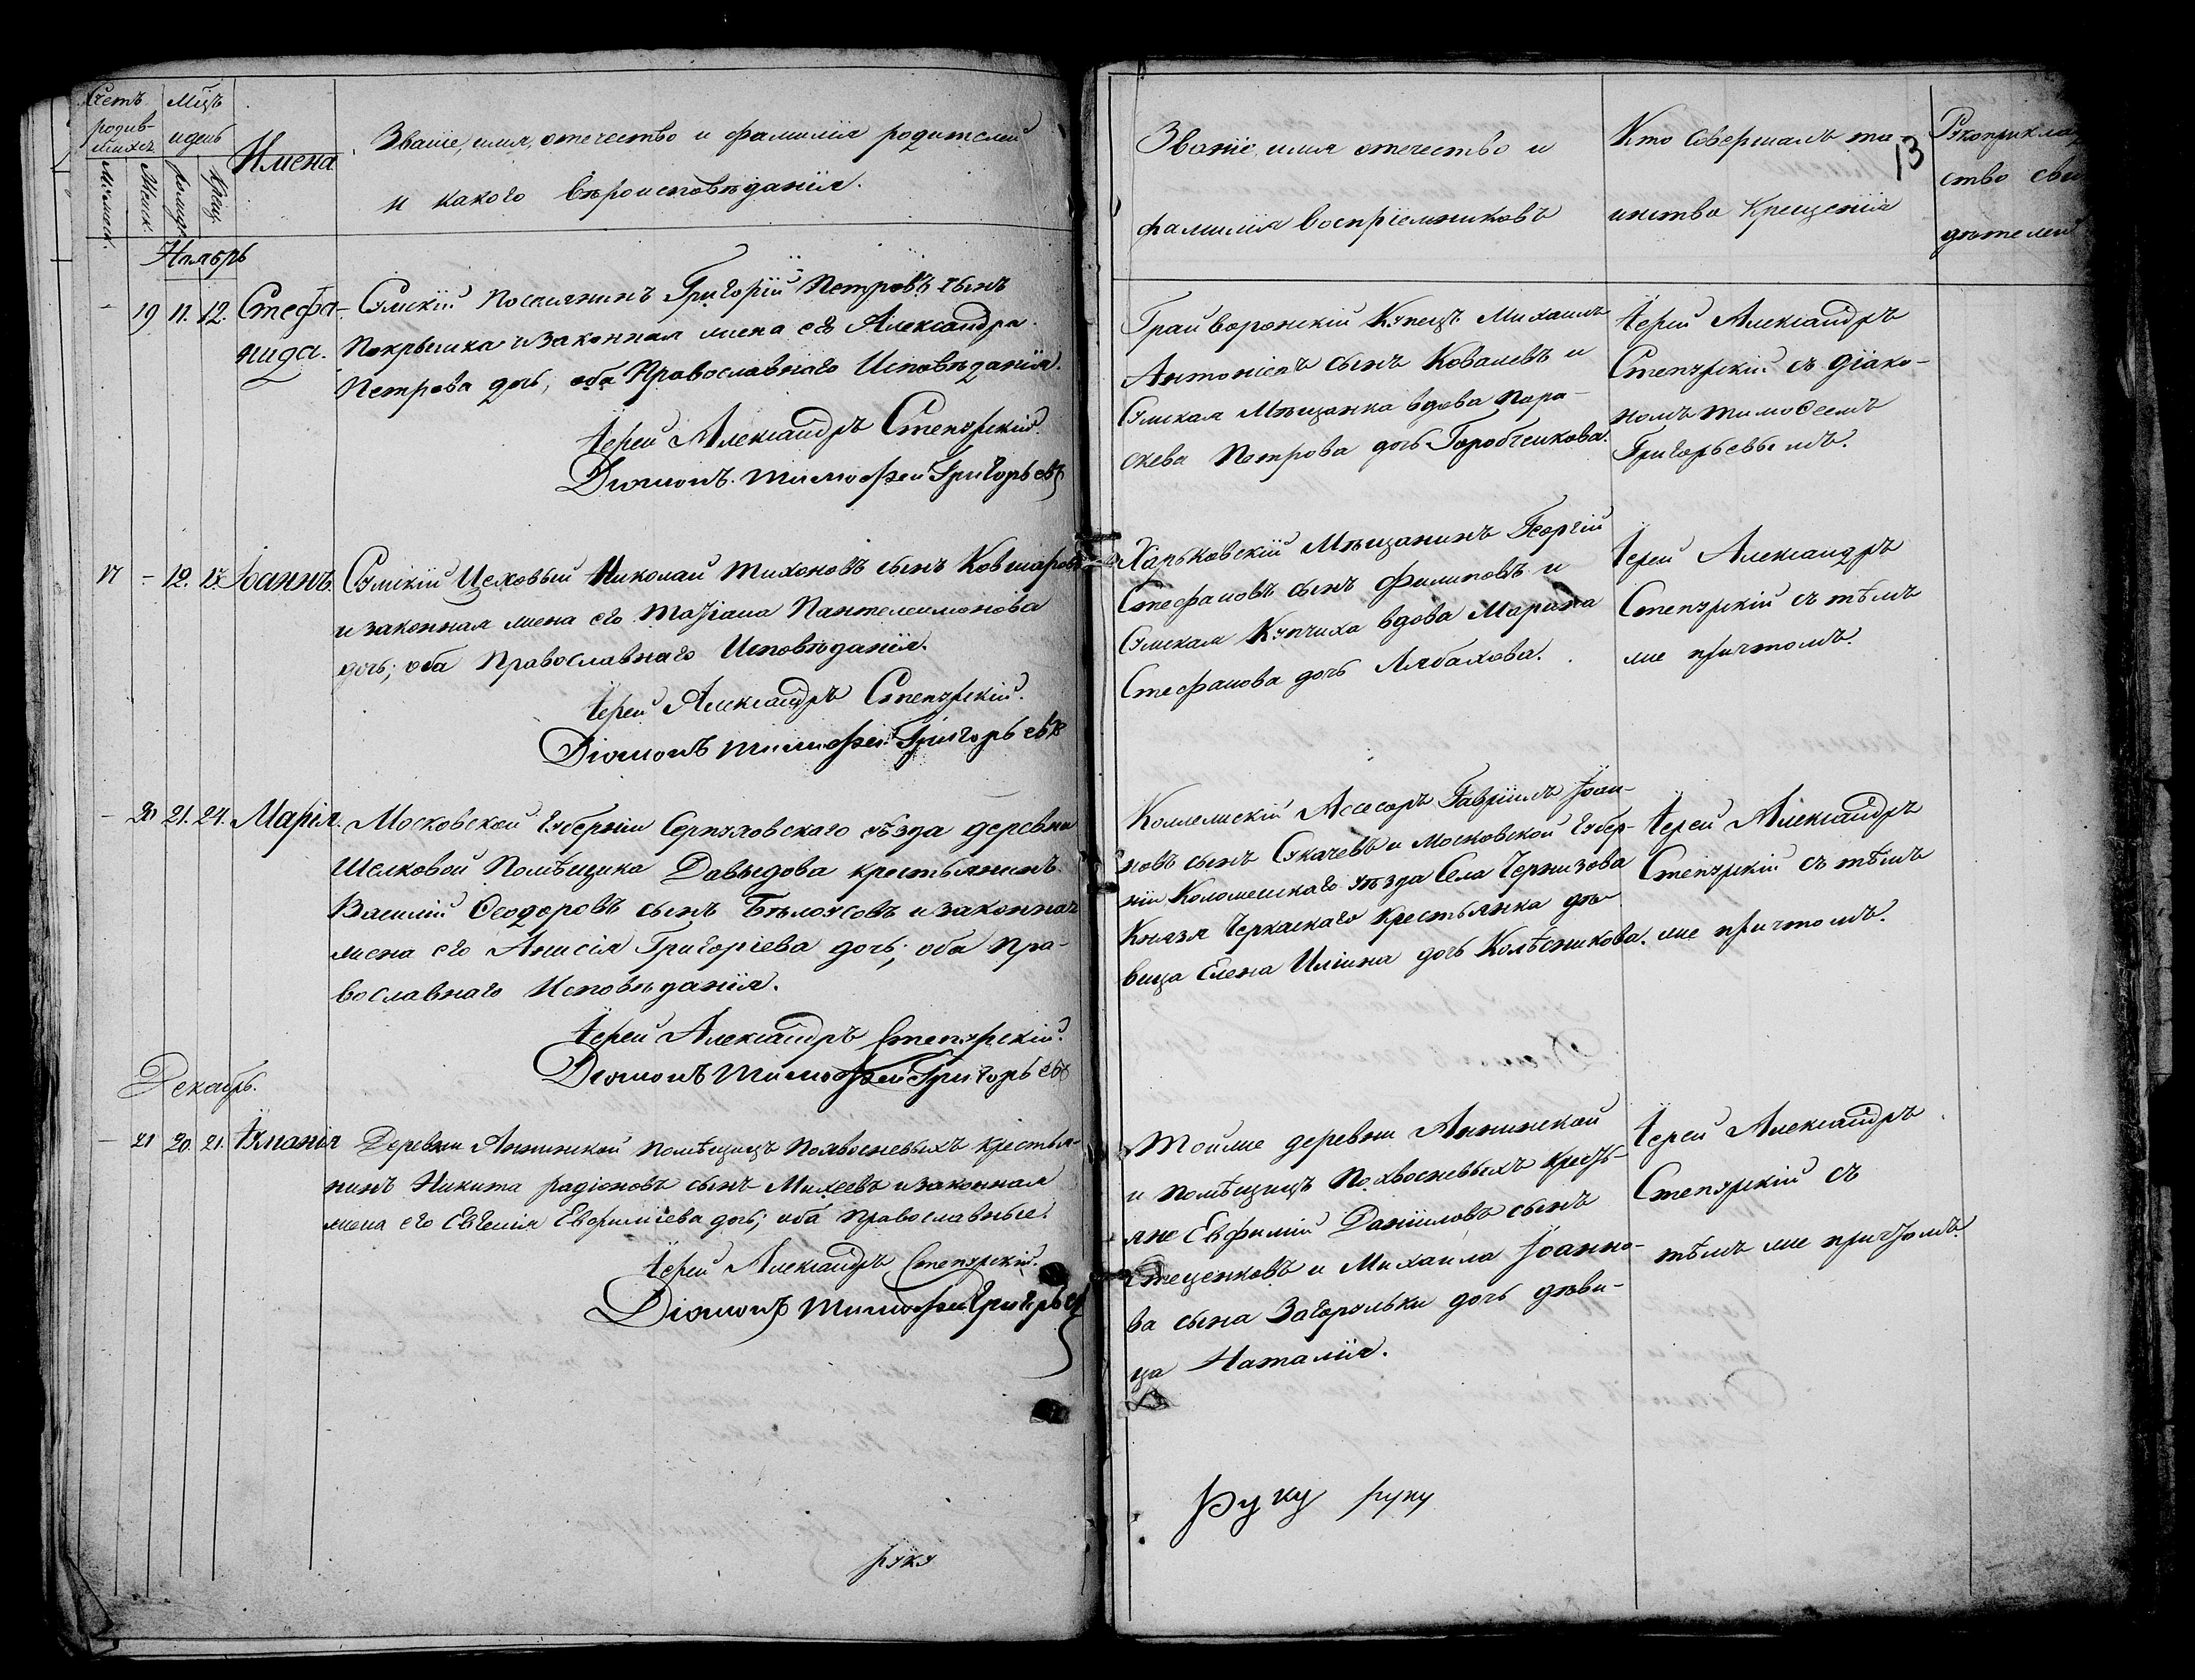 Счетъ
родив-
шихся
Мужеск.
Женск.
Мѣсяцъ
и день
рожден.
Крещ.
Имена
Званіе, имя, отечество и фамилія родителей
и какого вѣроисповѣданія.
Ноябрь
-
19
11.
12.
Стефа-
нида.
Сумскій Поселянинъ Григорій Петровъ сынъ
Покрышка и законная жена его Александра
Петрова дочь, оба Православнаго Исповѣданія.
Іерей Александръ Степурскій.
Діяконъ Тимофей Григорьевъ
17
-
12.
17.
Іоаннъ.
Сумскій Цеховый Николай Тихоновъ сынъ Ковшаровъ
и законная жена его Татіана Пантелеимонова
дочь; оба Православнаго Исповѣданія.
Іерей Александръ Степурскій.
Діяконъ Тимофей Григорьевъ
-
20
21.
24.
Марія.
Московской губерніи Серпуховскаго уѣзда деревни
Шелковой Помѣщика Давыдова крестьянинъ
Василій Ѳеодоровъ сынъ Бѣлоусовъ и законная
жена его Анисія Григоріева дочь; оба пра-
вославнаго Исповѣданія.
Іерей Александръ Степурскій.
Діяконъ Тимофей Григорьевъ
Декабрь.
-
21
20.
21.
Іуліанія
Деревни Аннинской помѣщицъ Похвосневыхъ крестья-
нинъ Никита радіоновъ сынъ Михеевъ и законная
жена его Евгенія Евфиміева дочь; оба православные.
Іерей Александръ Степурскій.
Діяконъ Тимофей Григорьевъ
руку
Званіе имя отечество и
фамилія воспріемниковъ
Кто совершалъ та-
инство Крещенія
13
Рукоприклад
ство сви
дѣтелей
Грайворонскій Купецъ Михаилъ
Антоніевъ сынъ Ковалевъ и
Сумская Мѣщанка вдова Пара-
скева Петрова дочь Горобченкова.
Іерей Александръ
Степурскій съ діако-
номъ Тимоѳеемъ
Григорьевымъ.
Харьковскій Мѣщанинъ Георгій
Стефановъ сынъ Филиповъ и
Сумская Купчиха вдова Марина
Стефанова дочь Лябахова.
Іерей Александръ
Степурскій съ тѣмъ
же причтомъ.
Коллежскій Асесоръ Гавріилъ Іоан-
новъ сынъ Сукачевъ и Московской губер-
ніи Коломенскаго уѣзда Села Черкизова
Князя Черкаскаго Крестьянка дѣ-
вица Елена Иліина дочь Колѣсникова.
Іерей Александръ
Степурскій съ тѣмъ
же причтомъ.
Тойже деревни Аннинской
и помѣщицъ Похвосневыхъ Кресть-
яне Евфимій Даніиловъ сынъ
Стеценковъ и Михаила Іоанно-
ва сына Загорульки дочь дѣви-
ца Наталія.
Іерей Александръ
Степурскій съ
тѣмъ же причтомъ.
Руку руку